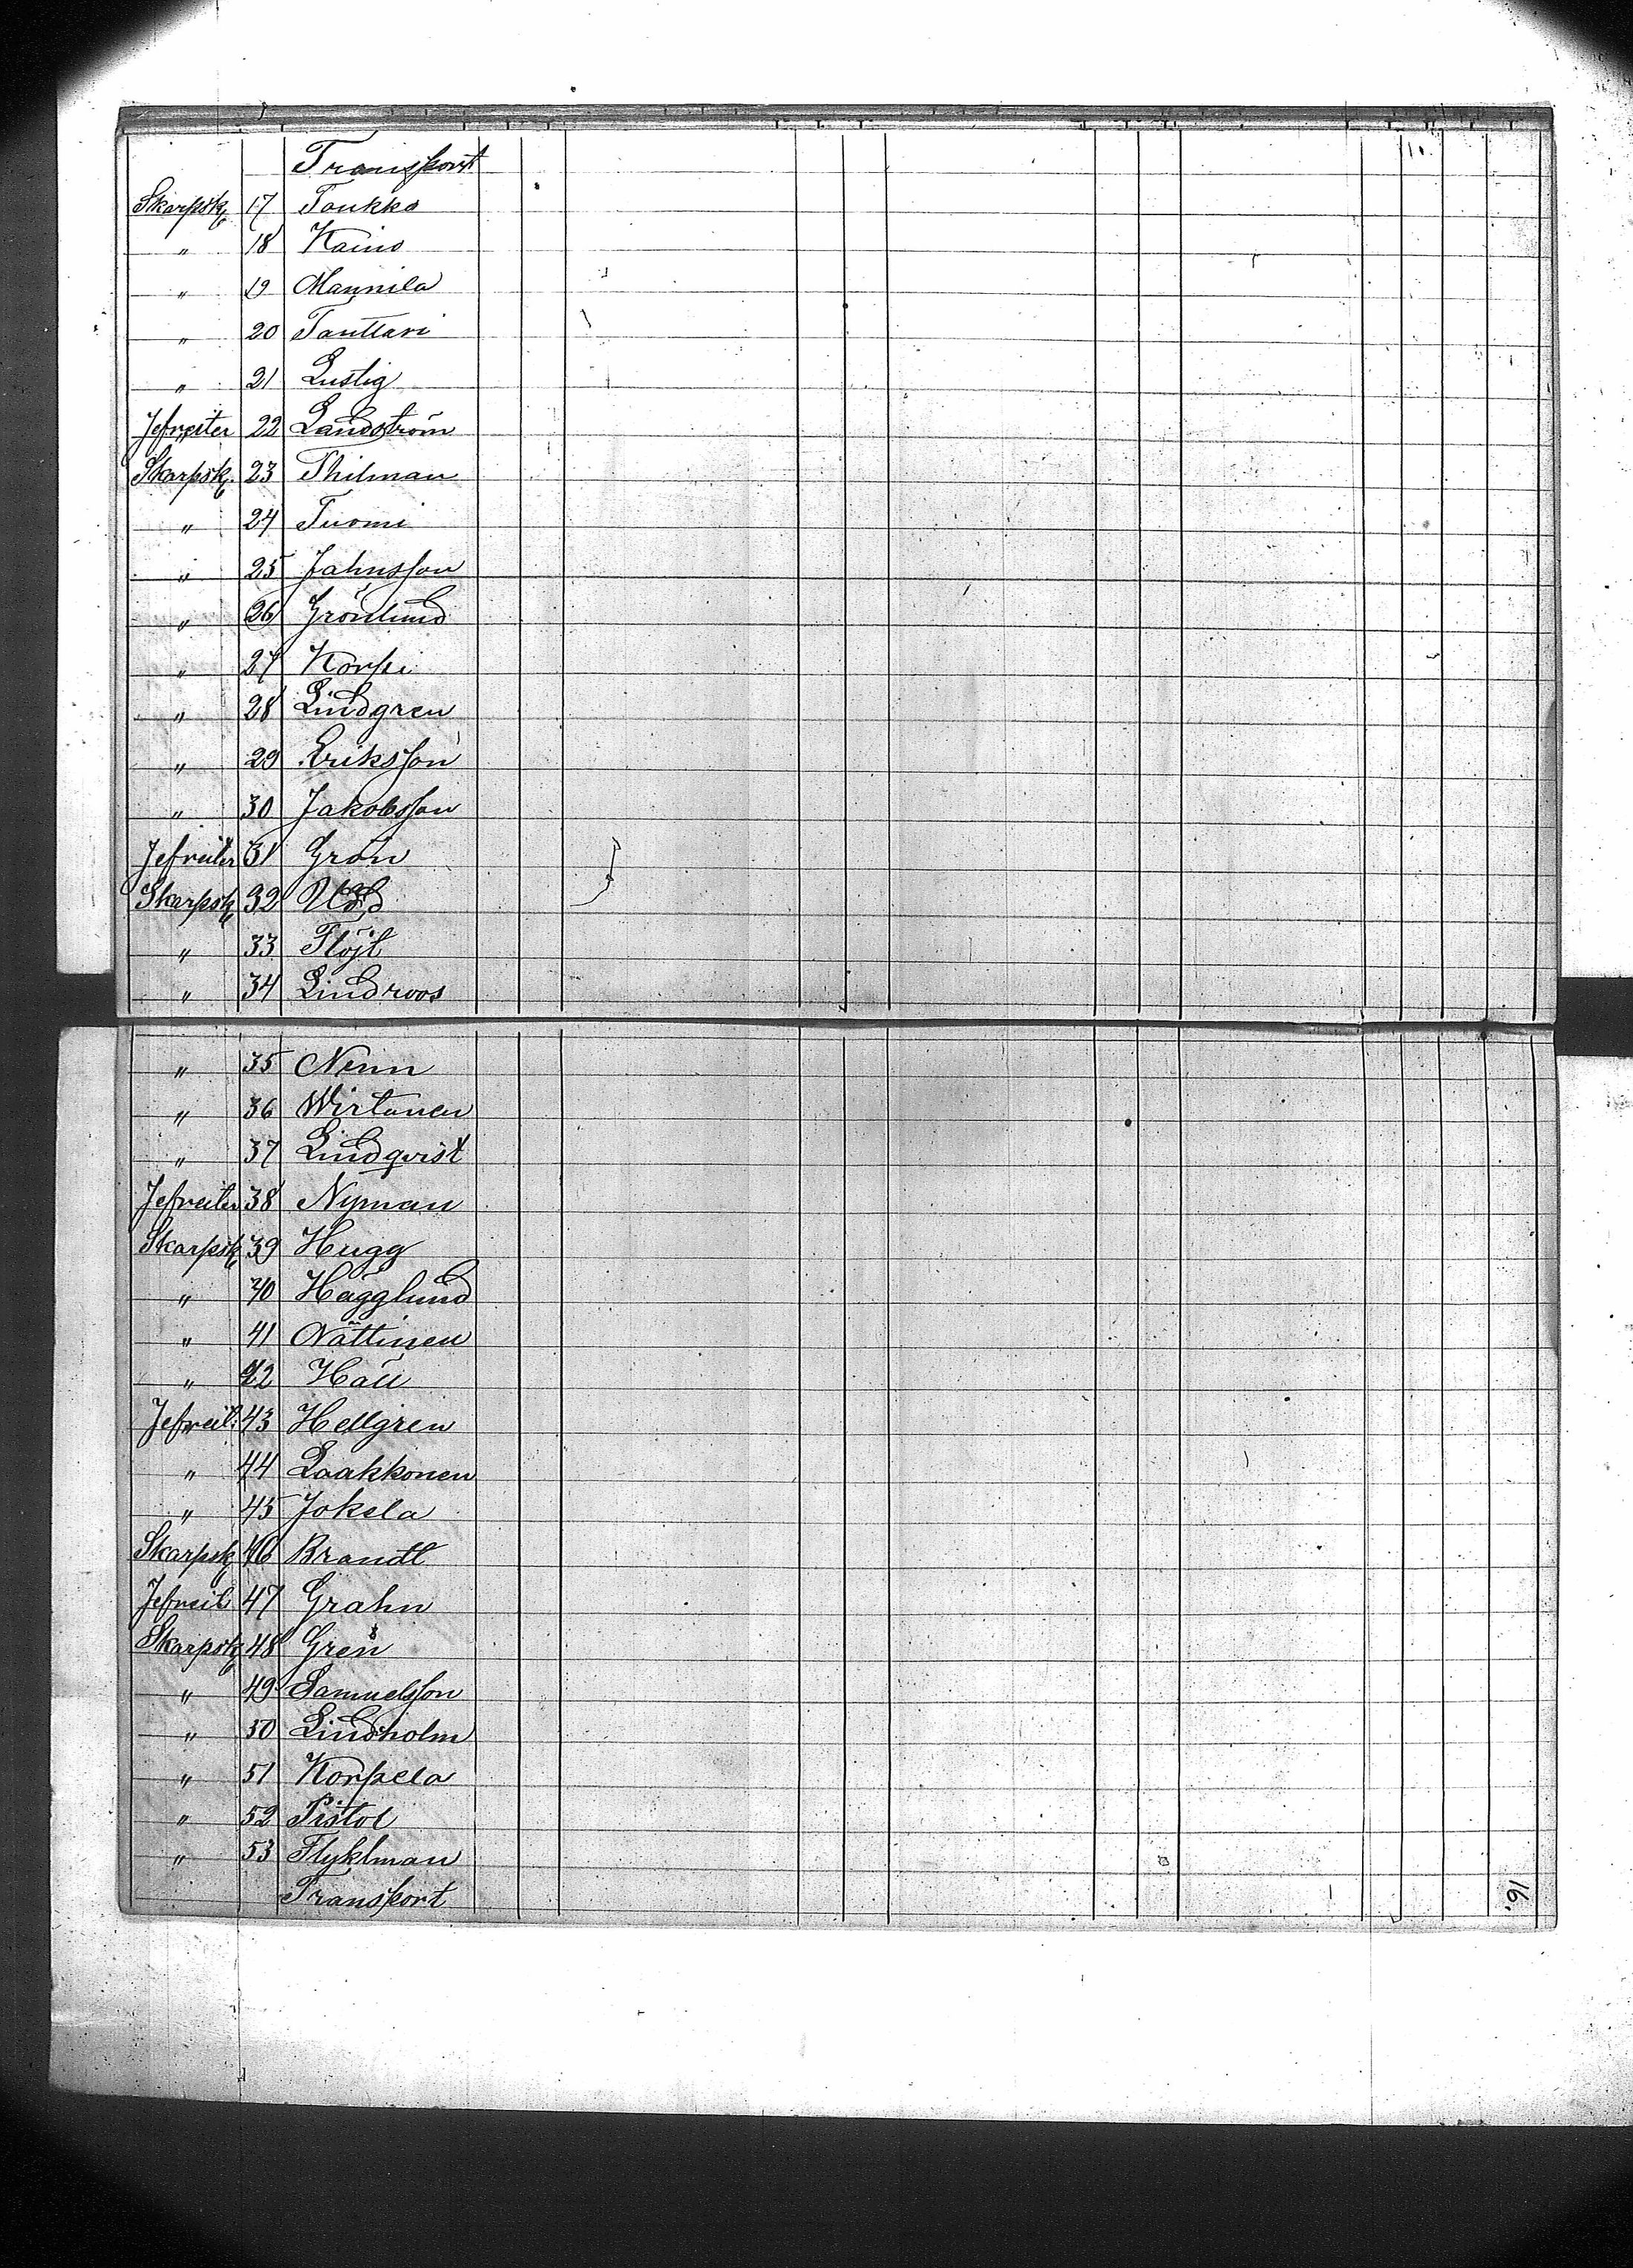 Transport
Skarpsk. 17 Toukko
" 18 Kaino
" 19 Mannila
" 20 Tanttari
" 21 Lustig
Jefreiter 22 Landström
Skarpsk. 23 Thilman
" 24 Tuomi
" 25 Jahnsson
" 26 Grönlund
" 27 Korpi
" 28 Lindgren
" 29 Eriksson
" 30 Jakobsson
Jefreiter 31 Grön
Skarpsk. 32
" 33 Flöjt
" 34 Lindroos
" 35 Nenn
" 36 Wirtanen
" 37 Lindqvist
Jefreiter 38 Nyman
Skarpsk. 39 Hugg
" 40 Hägglund
" 41 Nättinen
" 42
Jefreit. 43 Hellgren
" 44 Laakkonen
" 45 Jokela
Skarpsk. 46 Brandt
Jefreit 47 Grahn
Skarpsk. 48 Gren
" 49 Samuelsson
" 50 Lindholm
" 51 Korpela
" 52 Pistol
" 53 Flyktman
Transport
16.